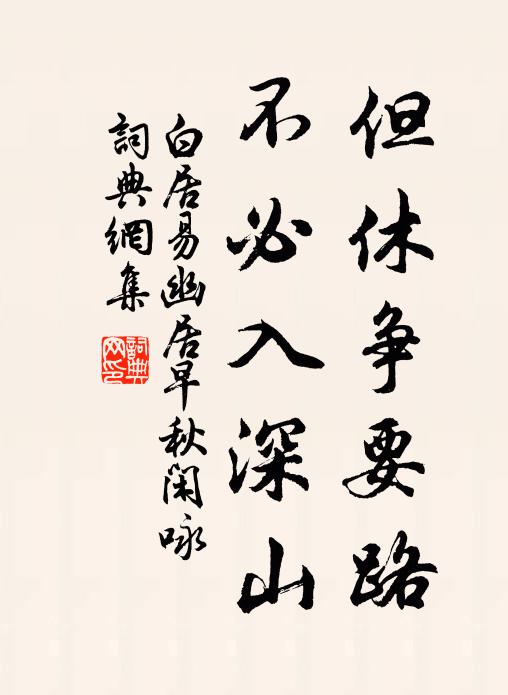 但休争要路
不必入深山
白居易幽居早秋閑咏
詞典網集
詞典
网印